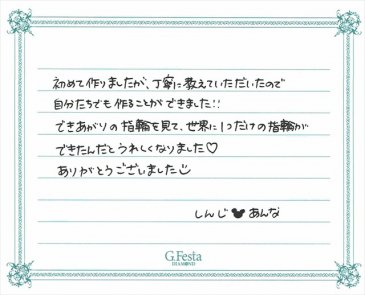 初めて作りましたが、丁寧に教えていただいたので
自分たちでも作ることができました!!
できあがりの指輪を見て、世界に1つだけの指輪が
できたんだとうれしくなりました♡
ありがとうございました
しんじ あんな
G.Festa
DIAMOND